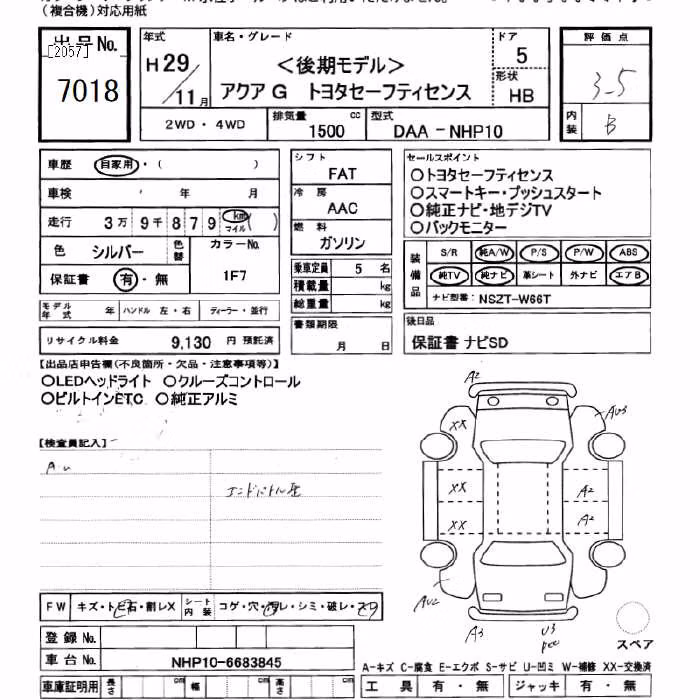 (複合機)対応用紙
出品No.
[2057]
7018
年式
H29/11月
車名・グレード
<後期モデル>
アクア G トヨタセーフティセンス
ドア
5
形状
HB
評価点
3.5
内装
B
2WD・4WD
排気量 1500 cc
型式 DAA-NHP10
車歴 自家用・( )
車検 年 月
走行 3万9千879 km マイル ( )
色 シルバー 色替
カラーNo.
1F7
保証書 有・無
モデル年式 年 ハンドル 左・右 ディーラー・並行
リサイクル料金 9,130 円 預託済
シフト
FAT
冷房
AAC
燃料
ガソリン
乗車定員 5 名
積載量 kg
総重量 kg
書類期限
月 日
セールスポイント
○トヨタセーフティセンス
○スマートキー・プッシュスタート
○純正ナビ・地デジTV
○バックモニター
装備品
S/R 純A/W P/S P/W ABS
純TV 純ナビ 革シート 外ナビ エアB
ナビ型番: NSZT-W66T
後日品
保証書 ナビSD
【出品店申告欄(不良箇所・欠品・注意事項等)】
○LEDヘッドライト ○クルーズコントロール
○ビルトインETC ○純正アルミ
【検査員記入】
A2
AU3
XX
XX
A2
XX
A2
AU2
A3
U3
スペア
FW キズ・トビ石・割レX
シート内装 コゲ・穴・汚レ・シミ・破レ・スレ
登録No.
車台No. NHP10-6683845
車庫証明用 長さ cm 幅 cm 高さ cm
A-キズ C-腐食 E-エクボ S-サビ U-凹ミ W-補修 XX-交換済
工具 有・無 ジャッキ 有・無